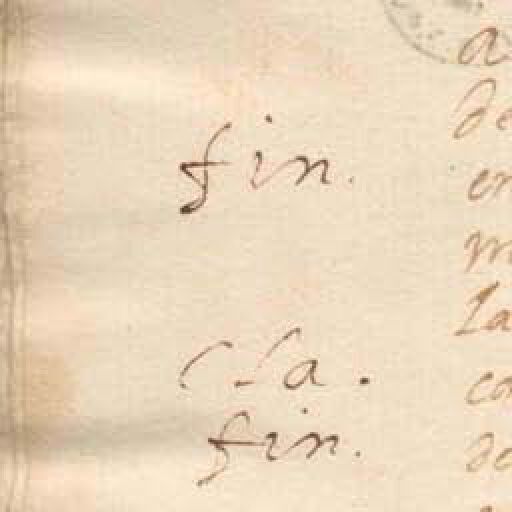 fin.
fin.
a
de
en
m
La
ca
do